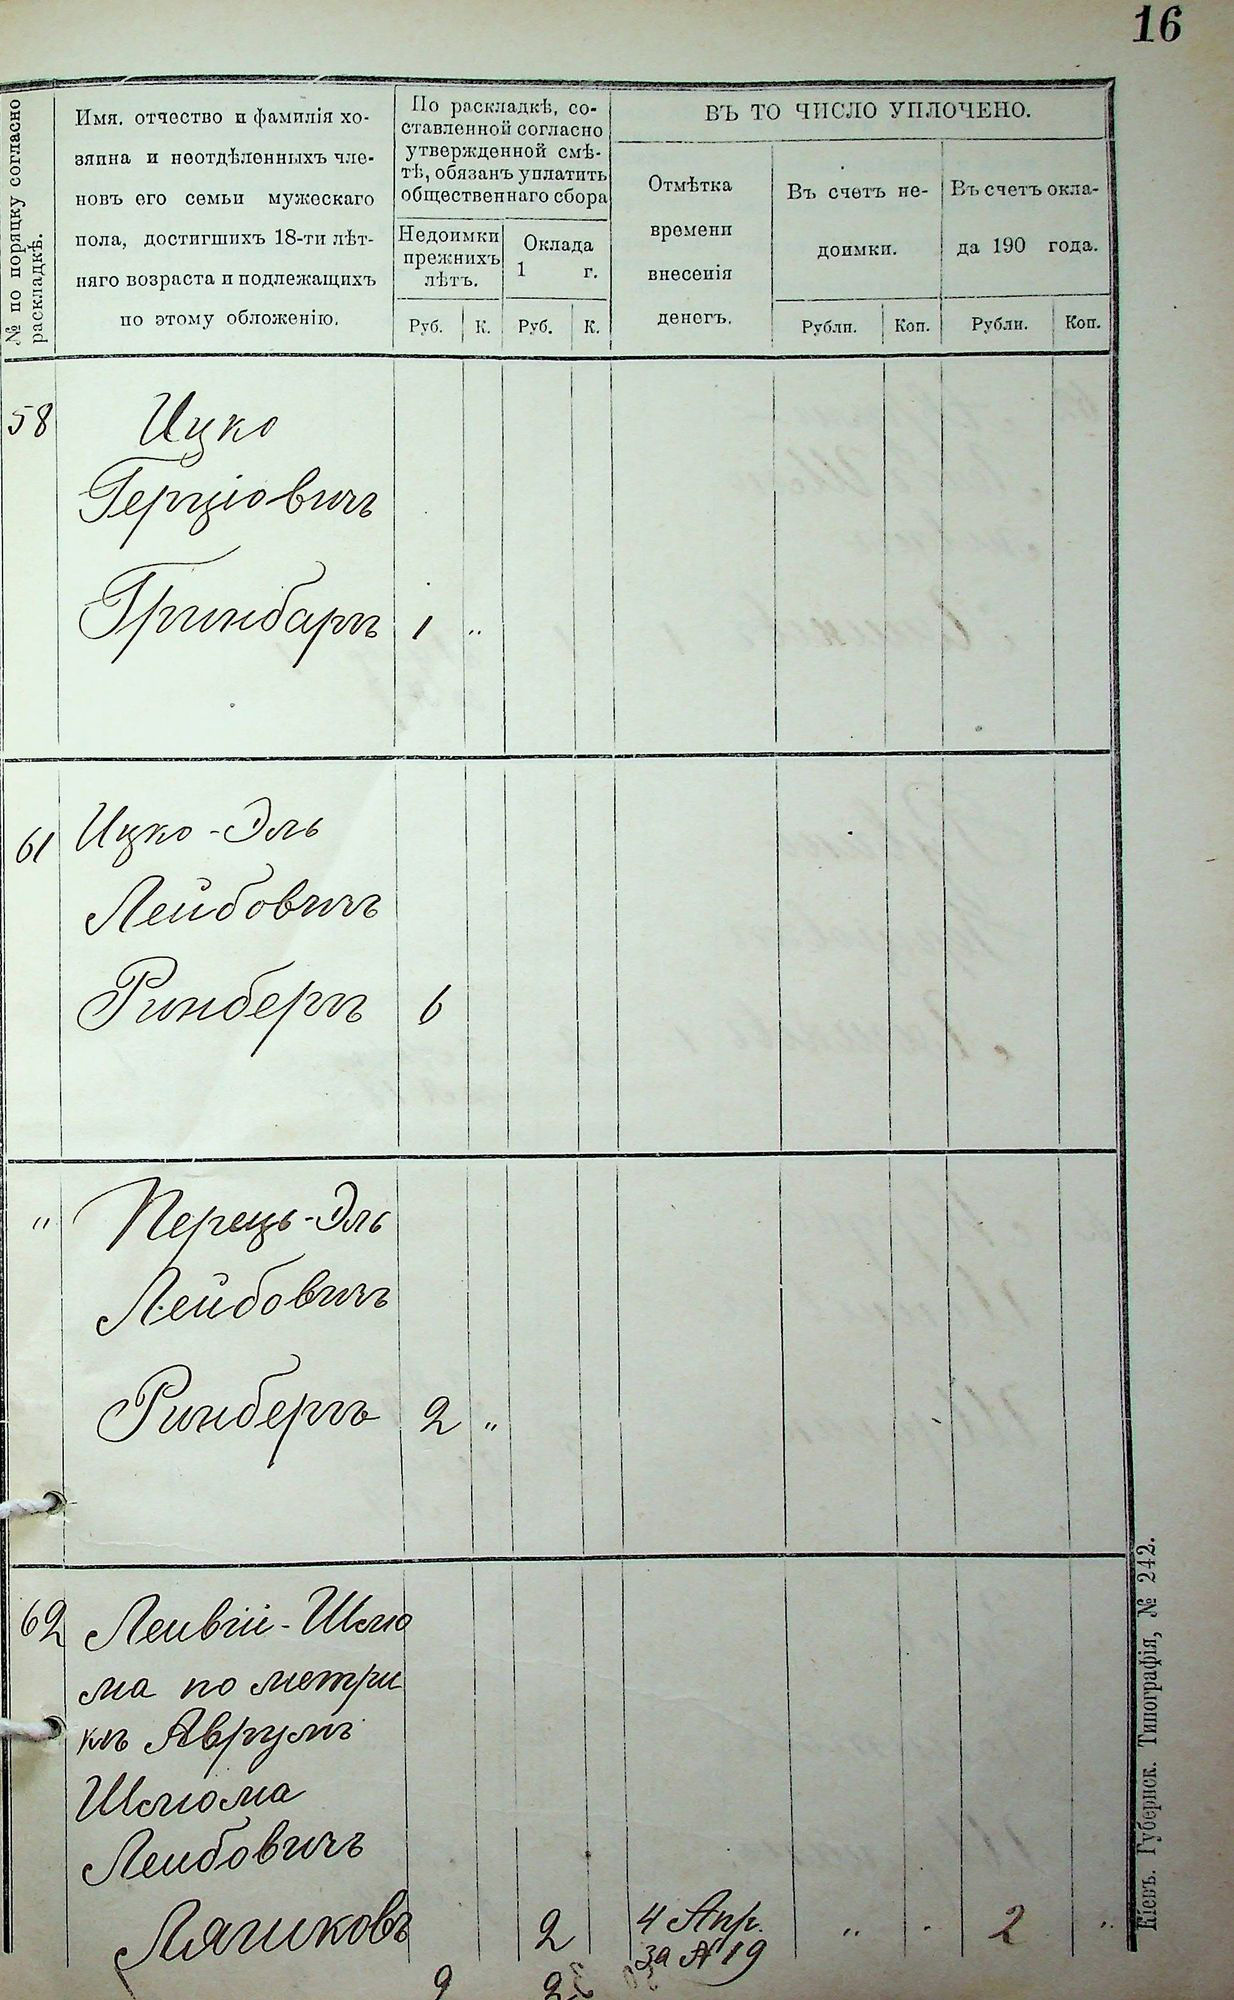 16
№ по поряцку согласно
раскладкѣ.
Имя. отчество и фамилія хо-
зяина и неотдѣленныхъ чле-
новъ его семьи мужескаго
пола, достигшихъ 18-ти лѣт-
няго возраста и подлежащихъ
по этому обложенію.
По раскладкѣ, со-
ставленной согласно
утвержденной смѣ-
тѣ, обязанъ уплатить
общественнаго сбора
Недоимки
прежнихъ
лѣтъ.
Оклада
1 г.
Руб. К. Руб. К.
ВЪ ТО ЧИСЛО УПЛОЧЕНО.
Отмѣтка
времени
внесенія
денегъ.
Въ счетъ не-
доимки.
Въ счетъ окла-
да 190 года.
Рубли. Коп. Рубли. Коп.
58 Ицко
Герціовичъ
Гринбаргъ 1 "
61 Ицко-Эль
Лейбовичъ
Ринбергъ 6
" Перецъ-Эль
Лейбовичъ
Ринбергъ 2 "
62 Леивіи-Шлио
ма по метри
къ Аврумъ
Шлиома
Леибовичъ
Ляшковъ 2 4 Апр. " 2 "
за № 19
9 2
Кіевъ. Губернск. Типографія, № 242.